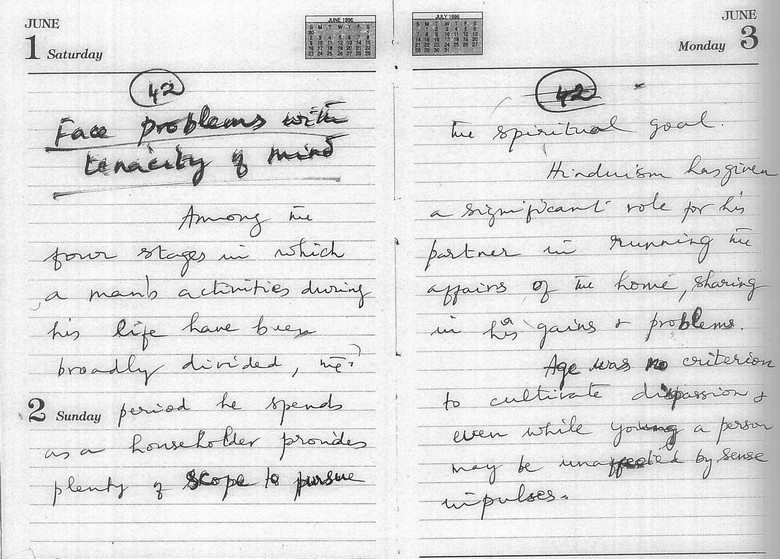 JUNE
1 Saturday
JUNE 1996
42
Face problems with
tenacity of mind
Among the
four stages in which
a man's activities during
his life have been
broadly divided, the
2 Sunday period he spends
as a householder provides
plenty of scope to pursue
JULY 1996
JUNE
Monday 3
42
the spiritual goal.
Hinduism has given
a significant role for his
partner in running the
affairs of the home, sharing
in his gains & problems.
Age was no criterion
to cultivate dispassion &
even while young a person
may be unaffected by sense
impulses.